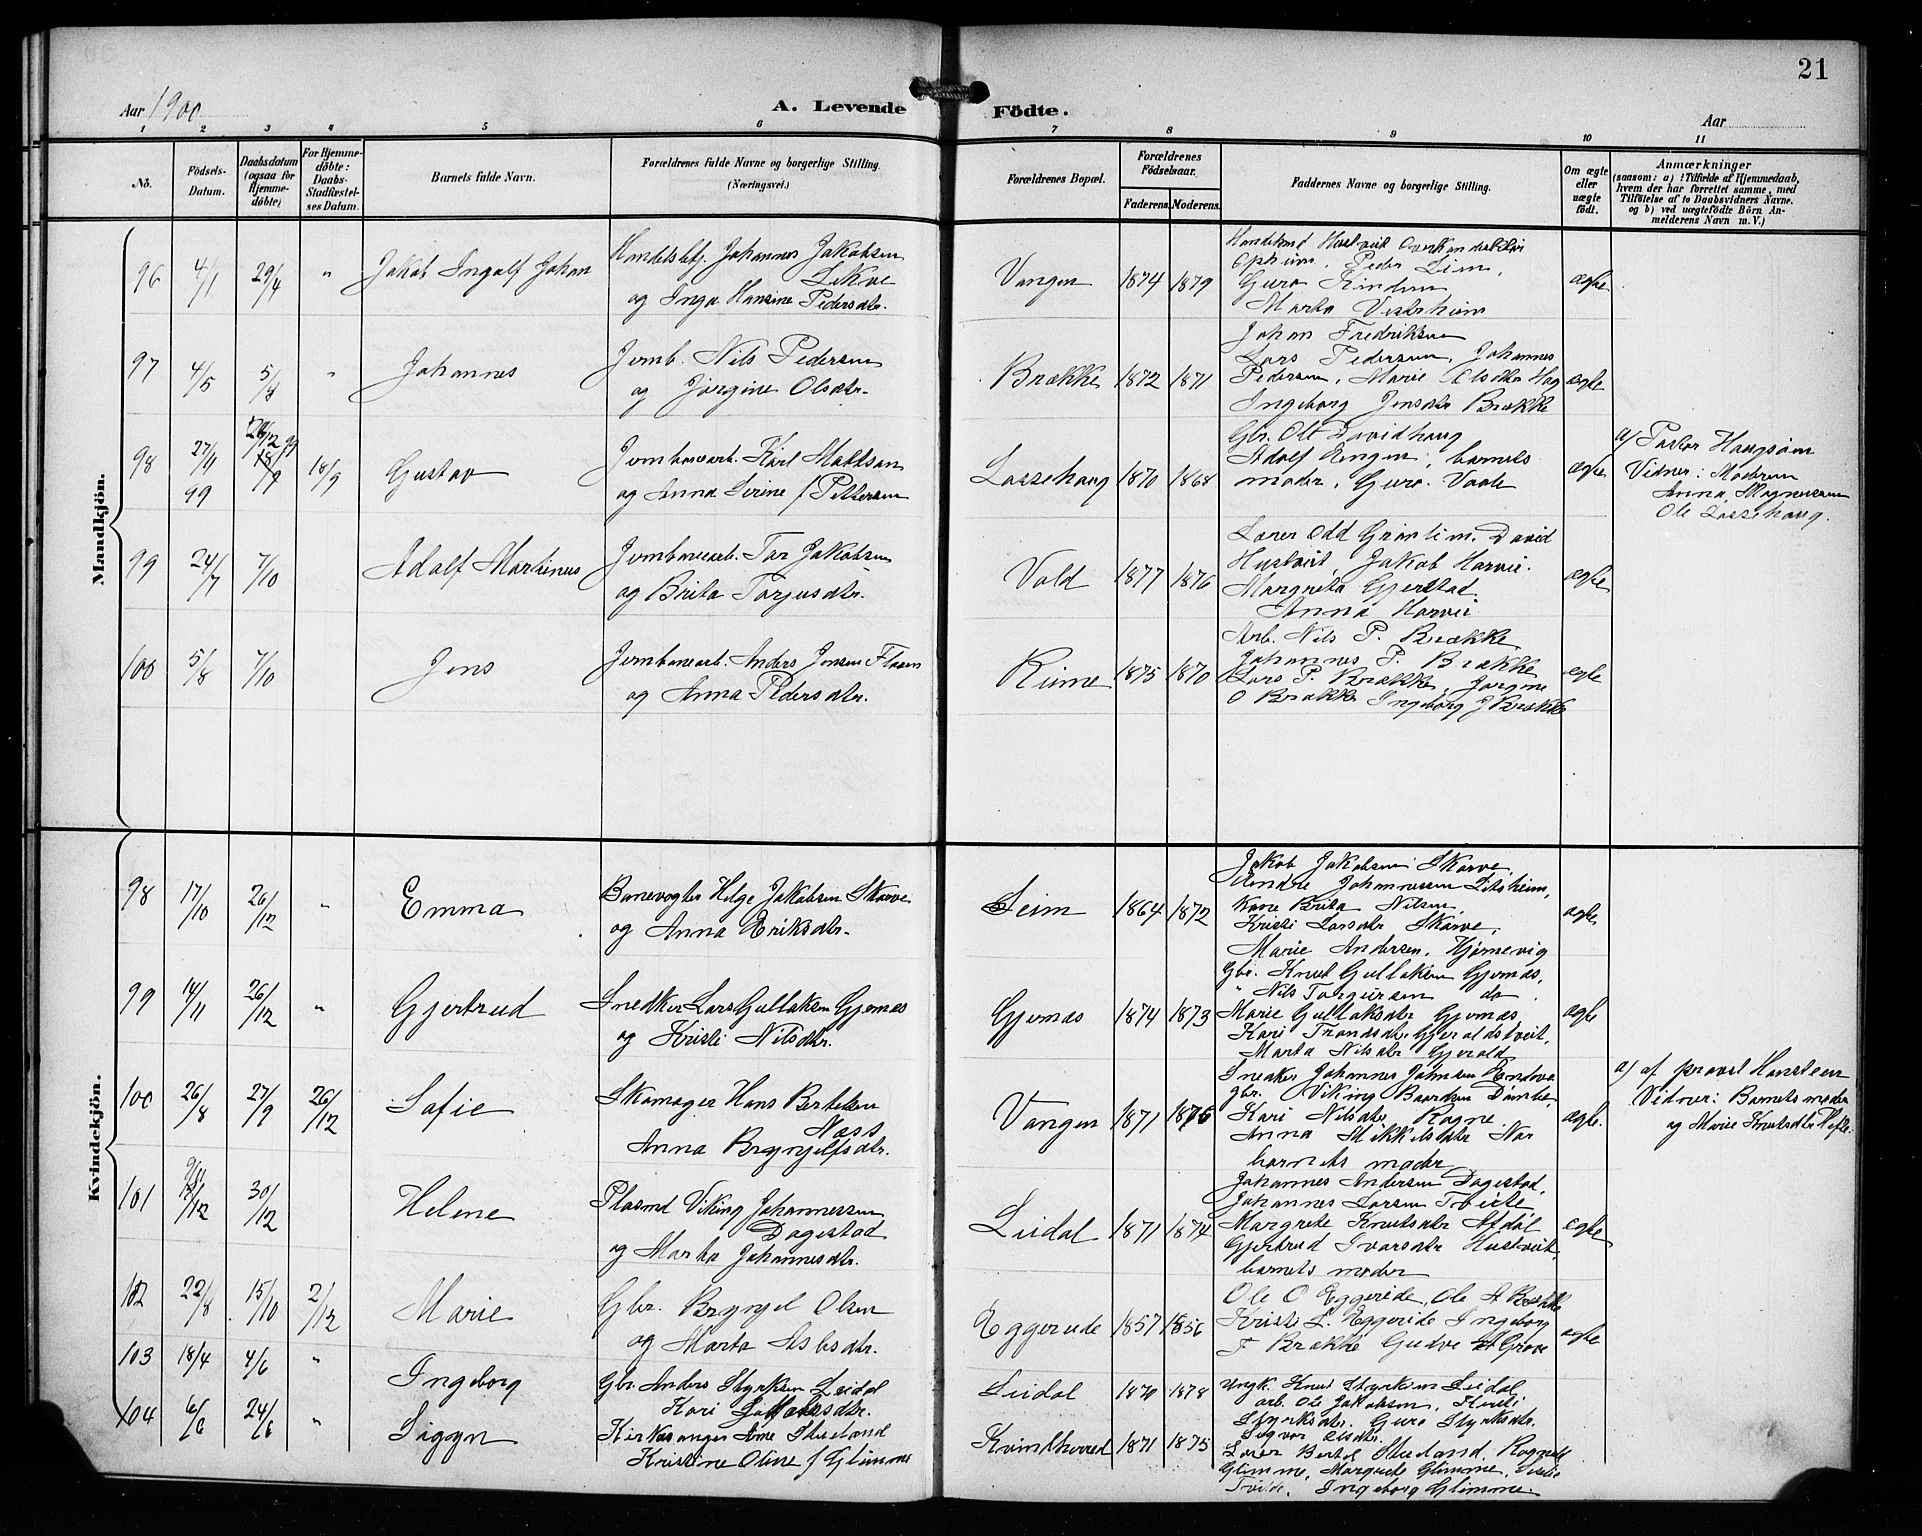 21
Aar 1900
A. Levende Födte.
Aar
1 2 3 4 5 6 7 8 9 10 11
No.
Födsels-Datum.
Daabsdatum (ogsaa for Hjemme-döbte)
For Hjemme-döbte: Daabs-Stadfæstel-ses Datum.
Barnets fulde Navn.
Forældrenes fulde Navne og borgerlige Stilling.
(Næringsvei.)
Forældrenes Bopæl.
Forældrenes Födselsaar.
Faderens. Moderens.
Faddernes Navne og borgerlige Stilling.
Om ægte eller uægte födt.
Anmærkninger
(saasom: a) i Tilfælde af Hjemmedaab,
hvem der har forrettet samme, med
Tilföielse af to Daabsvidners Navne.
og b) ved uægtefödte Börn An-
melderens Navn m. V.)
Mandkjön.
96 4/1 29/4 " Jakob Ingolf Johan
Handelsbtj. Johannes Jakobsen
Lekve
og Inga Hansine Pedersdtr.
Vangen 1874 1879
Peder Leim,
Guro
Marta
ægte
97 4/5 5/8 " Johannes
Jernb. Nils Pedersen
og Jörgine Olsdtr.
Brække 1872 1871
Johan Fredriksen
Lars Pedersen, Johannes
Pedersen, Marie Olsdtr
Ingeborg Jensdtr Brække
ægte
98 27/11 99 26/12 99 18/9 Gustav
Jernbanearb. Karl Mattsen
og Anna Serine f Pettersen
Lassehaug 1870 1868
Gbr. Ole Davidhaug
Adolf Engen, barnets
moder, Guro
ægte
a/ Pastor Haugsöen
Vidner: Moderen
Anna Magnussen
Ole Lassehaug.
99 24/7 7/10 Adolf Martinus
Jernbanearb. Tor Jakobsen
og Brita Torjusdtr.
Vold 1877 1876
Lærer Odd Grönlien. David
Hustveit, Jakob Horvei.
Margreta Gjerstad
Anna Horvei
ægte
100 5/8 7/10 Jens
Jernbanearb. Anders Jensen
og Anna Pedersdtr.
Rime 1875 1870
Arb. Nils P. Brække
Johannes P. Brække
Lars P. Brække, Jörgine
O Brække Ingeborg J Brække
ægte
Kvindekjön.
98 17/10 26/12 " Emma
Banevogter Helge Jakobsen Skorve
og Anna Eriksdtr.
Seim 1864 1872
Jakob Jakobsen Skorve
Andre Johannessen
Kone Brita Nilsen
Kristi Larsdtr Skorve,
Marie Andersen, Hjörnevig
ægte
99 14/11 26/12 " Gjertrud
Snedker Lars Gullaksen Gjernæs
og Kristi Nilsdtr.
Gjernæs 1874 1873
Gbr. Knut Gullaksen Gjernæs,
" Nils Torgersen do
Marie Gullaksdtr Gjernæs
Kari Trondsdtr
Marta Nilsdtr Gjerald
ægte
100 26/8 27/9 26/12 Sofie
Skomager Hans Bertelsen
Næss
Anna Brynjelfsdtr.
Vangen 1871 1876
Snedker Johannes Johnsen
gbr. Viking Baardsen
Kari Nilsdtr Rogne
Anna Mikkelsdtr
barnets moder
ægte.
a) af provst Hansteen
Vidner: Barnets moder
og Marie Knutsdtr
101 9/12 30/12 Helene
Plasmd Viking Johannessen
Dagestad
og Marta Johannesdtr.
Liidal 1871 1874
Johannes Andersen Dagestad,
Johannes Larsen Tveite,
Margrete Knutsdtr Afdal
Gjertrud Ivarsdtr Hustveit
barnets moder
ægte
102 22/8 15/10 2/12 Marie
Gbr. Brynjel Olsen
og Marta Asbsdtr.
Eggereide 1857 1856
Ole O Eggereide, Ole A Brække
Kristi L. Eggereide Ingeborg
T Brække Gudve A Grove
ægte
103 18/4 4/6 " Ingeborg
Gbr Anders Styrksen Liidal
Kari
Liidal 1870 1878
Ungk. Knut Styrksen Liidal
arb. Ole Jakobsen,
Styrksdtr. Guro Styrksdtr.
Sigvor Olsdtr.
104 6/6 24/6 " Sigyn
Kirkesanger Arne Skeeland
Kristine Oline f Glimme
Kvindherred 1871 1875
Lærer Bertel Skeeland. Ragna
Glimme, Margrete Glimme,
Tveite, Ingeborg Glimme.